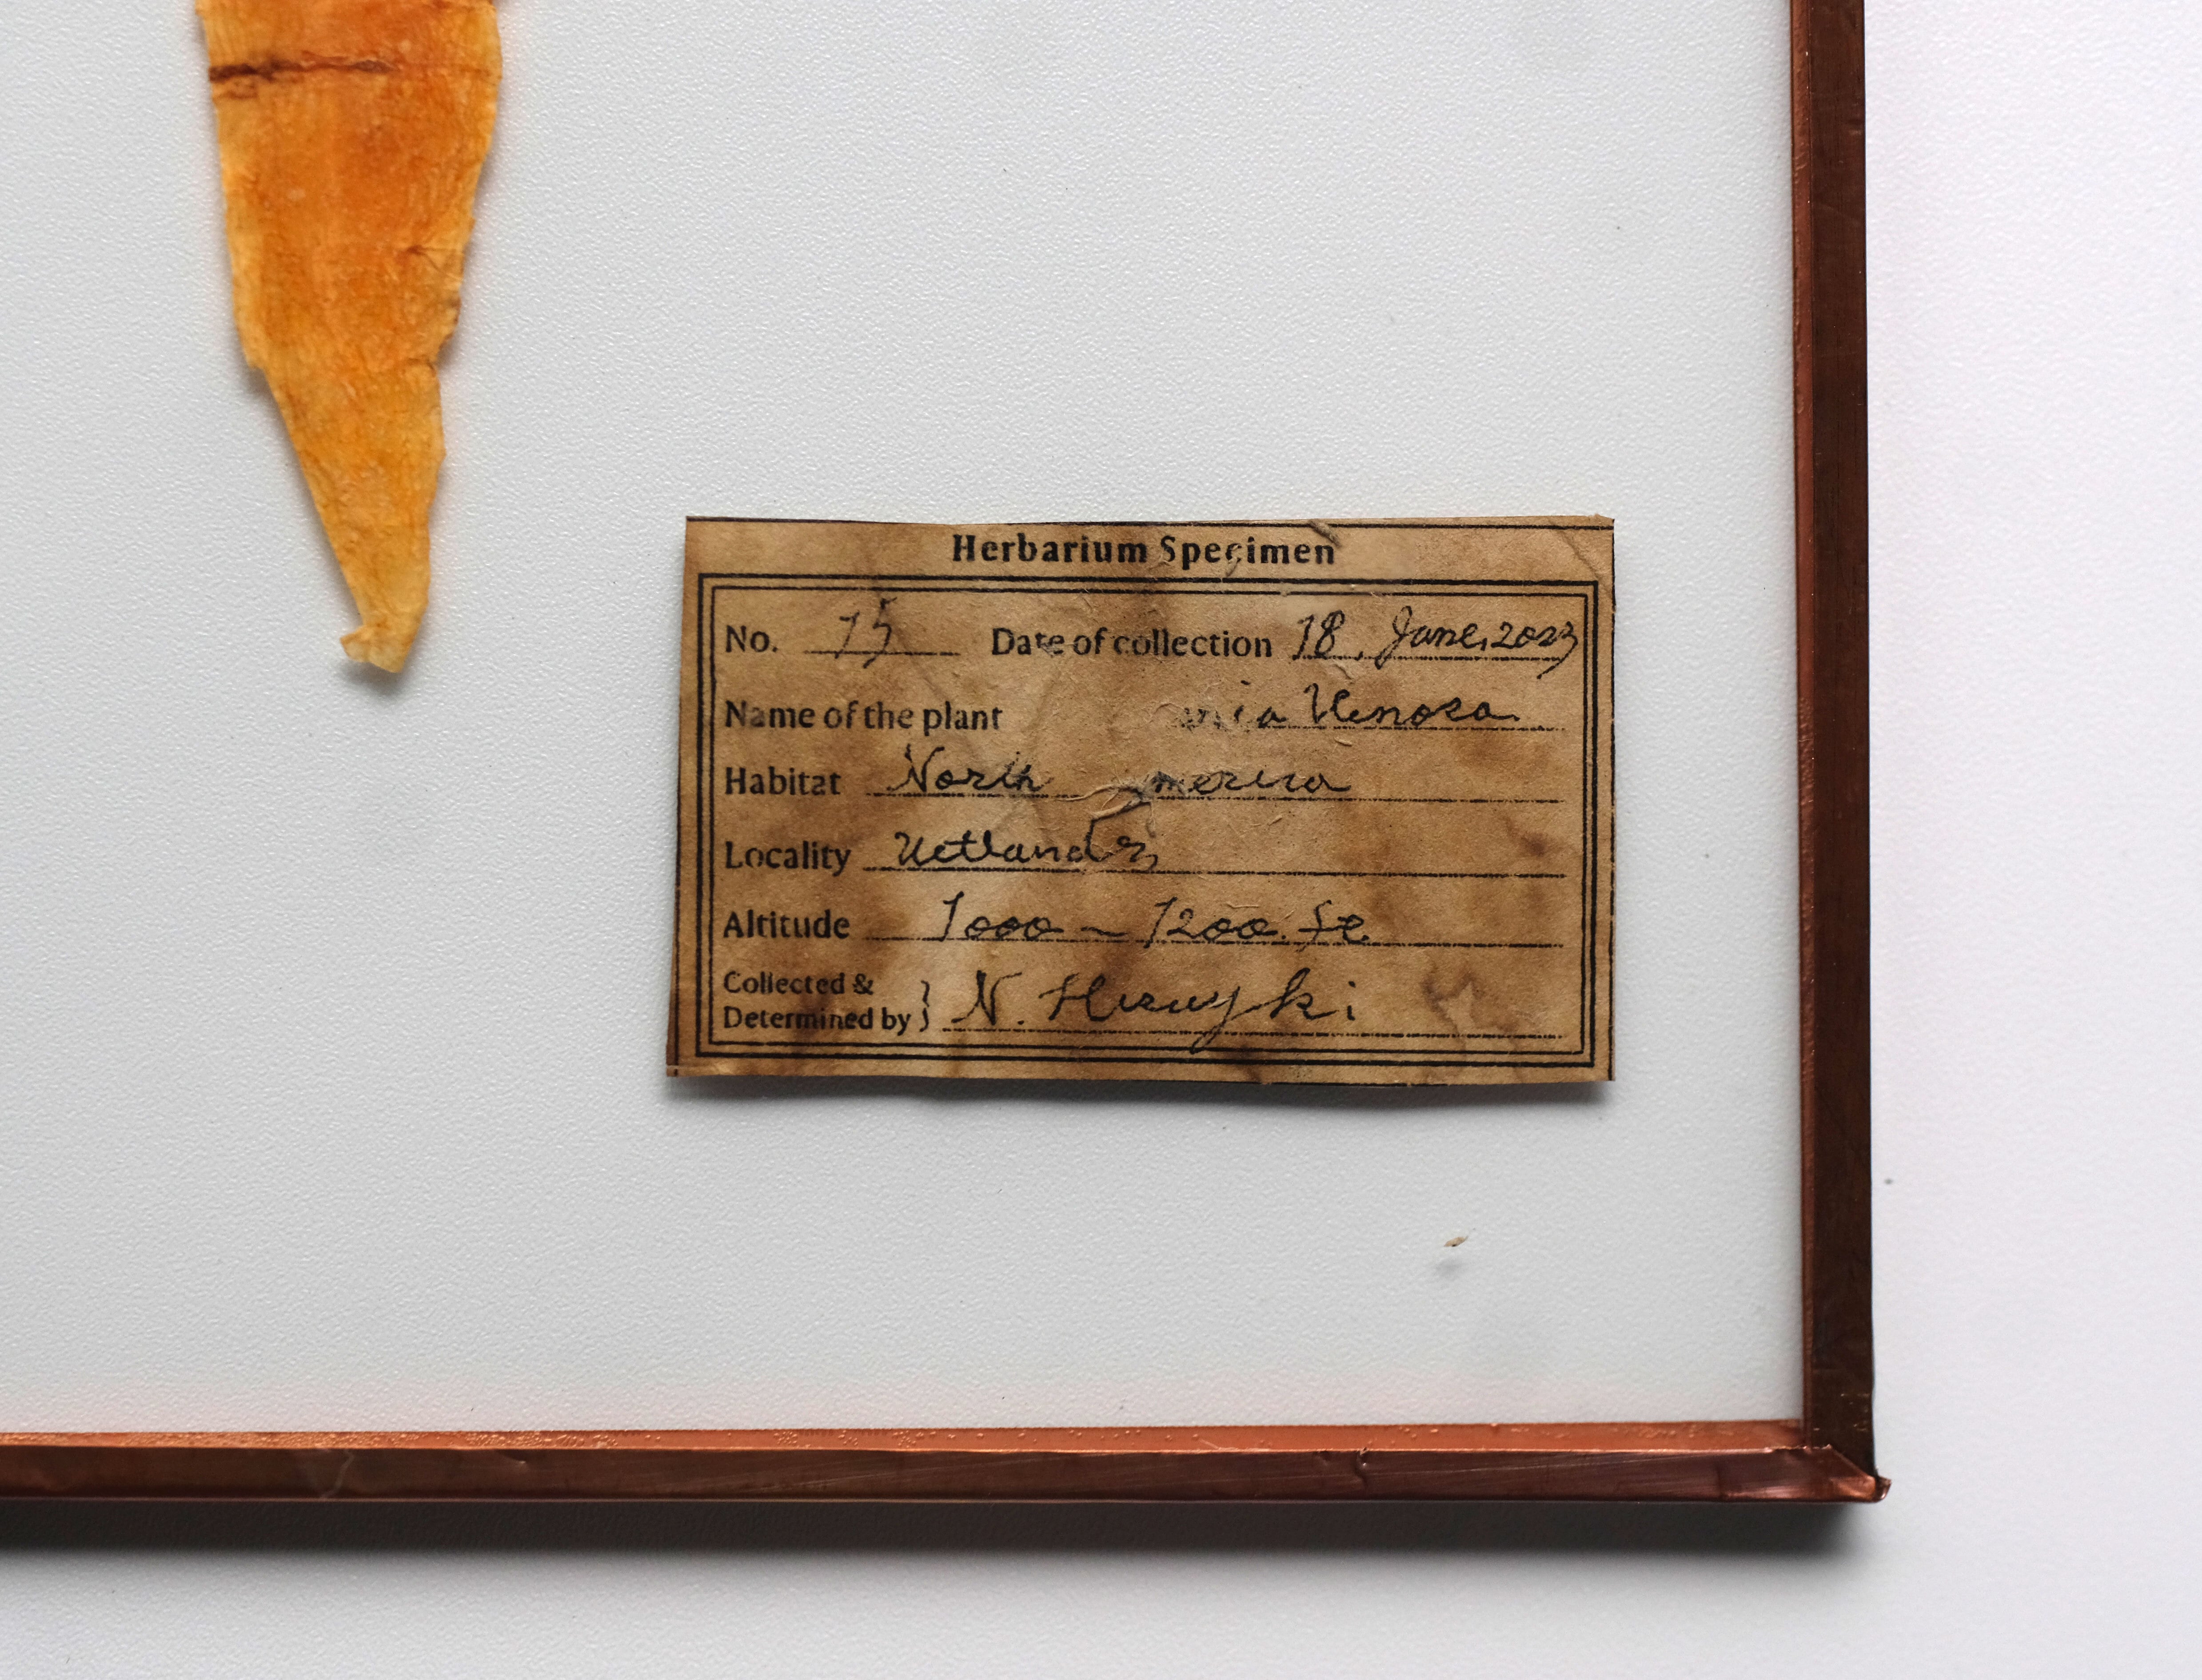 Herbarium Specimen
No. 15 Date of collection 18. June. 2023
Name of the plant Venosa
Habitat North America
Locality Wetlands
Altitude 1000 ~ 1200. ft
Collected &
Determined by } N.